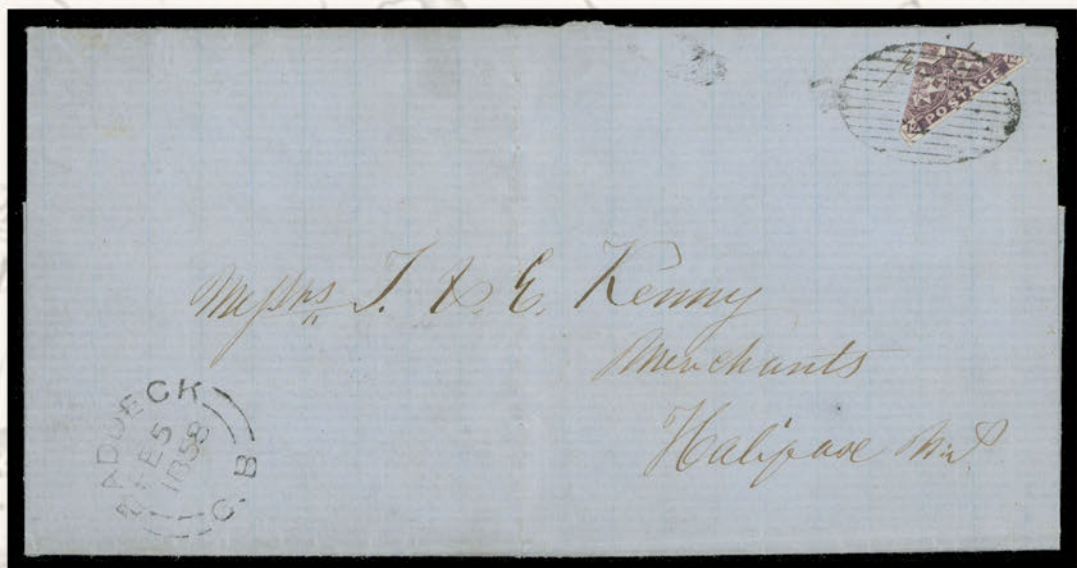 POSTAGE
Messrs T. & E. Kenny
Merchants
Halifax N.S
BADDECK
FE 5
1858
C. B